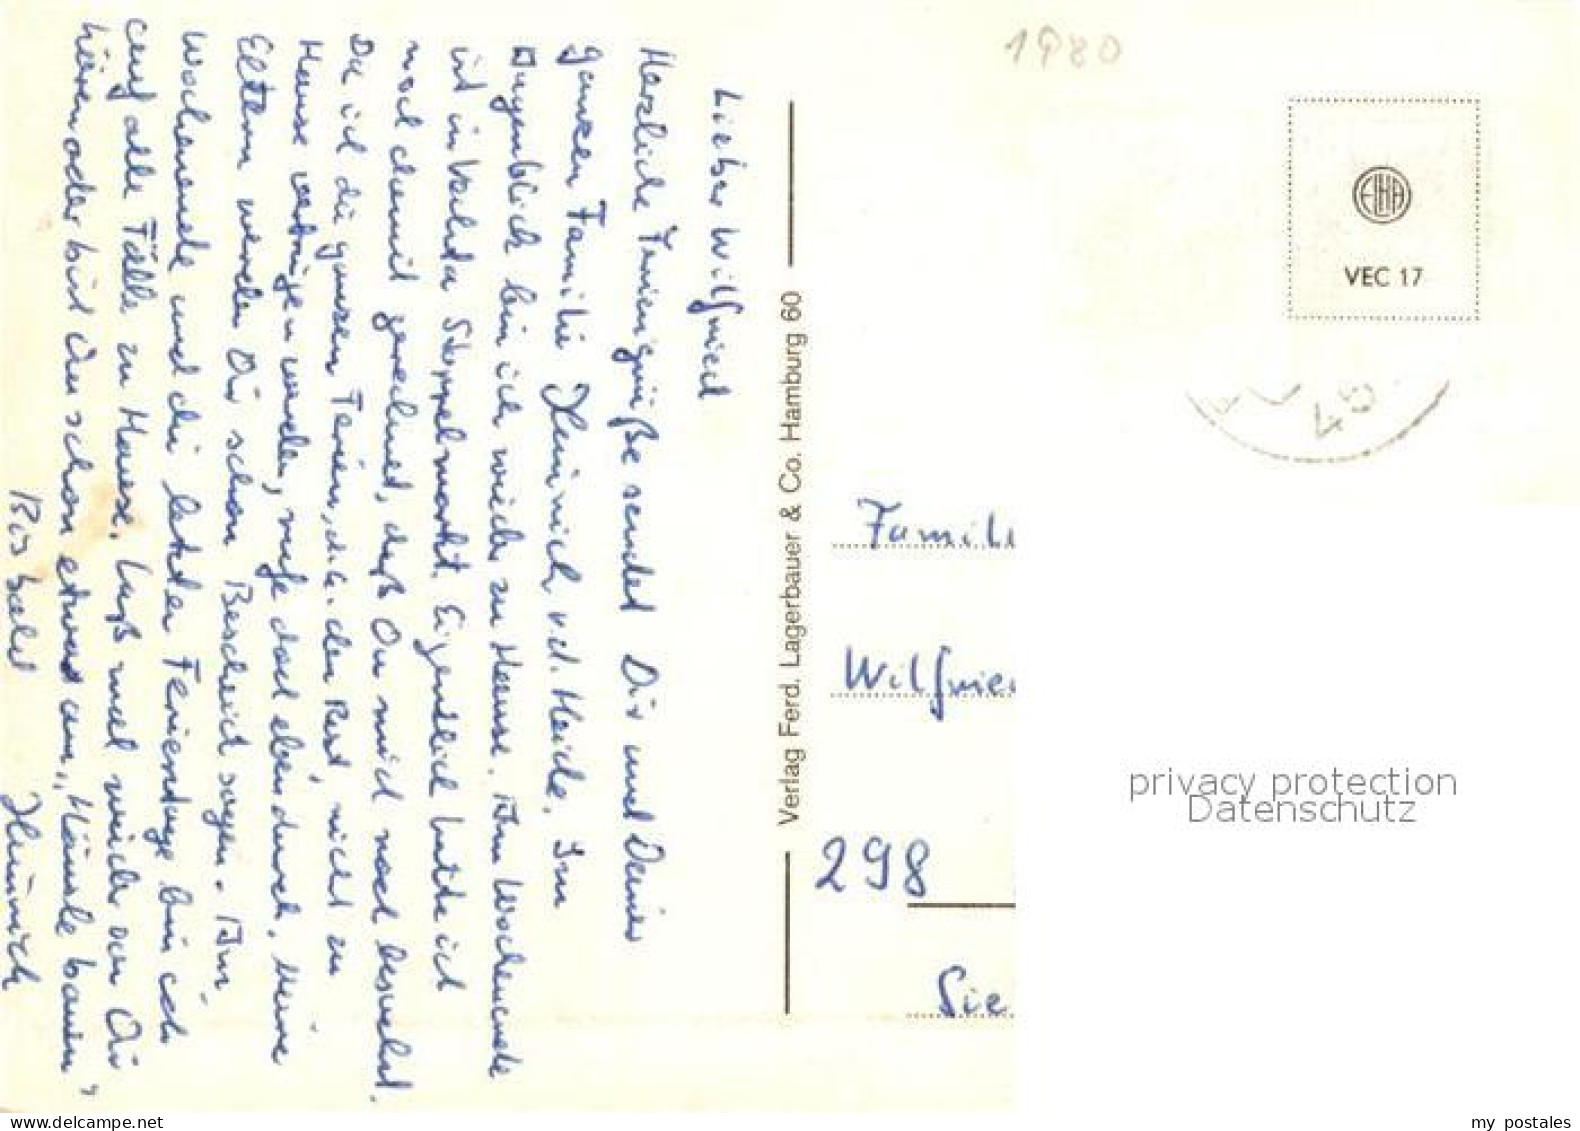 1980
Lieber Wilfried
Herzliche Feriengrüße sendet Dir und Deiner
ganzen Familie Heinrich v.d. Heide. Im
Augenblick bin ich wieder zu Hause. Am Wochenende
ist in Vechta Stoppelmarkt. Eigentlich hatte ich
noch damit gerechnet, daß Du mich noch besuchst.
Da ich die ganzen Ferien, d.h. den Rest, nicht zu
Hause verbringen werde, rufe doch eben durch, meine
Eltern werden Dir schon Bescheid sagen. Am
Wochenende und die letzten Ferientage bin ich
auf alle Fälle zu Hause. Laß mal wieder von Dir
hören oder bist Du schon etwas am „Häusle bauen"?
Bis bald
Heinrich
Verlag Ferd. Lagerbauer & Co. Hamburg 60
ELHA
VEC 17
Famili
Wilfried
298
Sie
privacy protection
Datenschutz
www.delcampe.net
my_postales